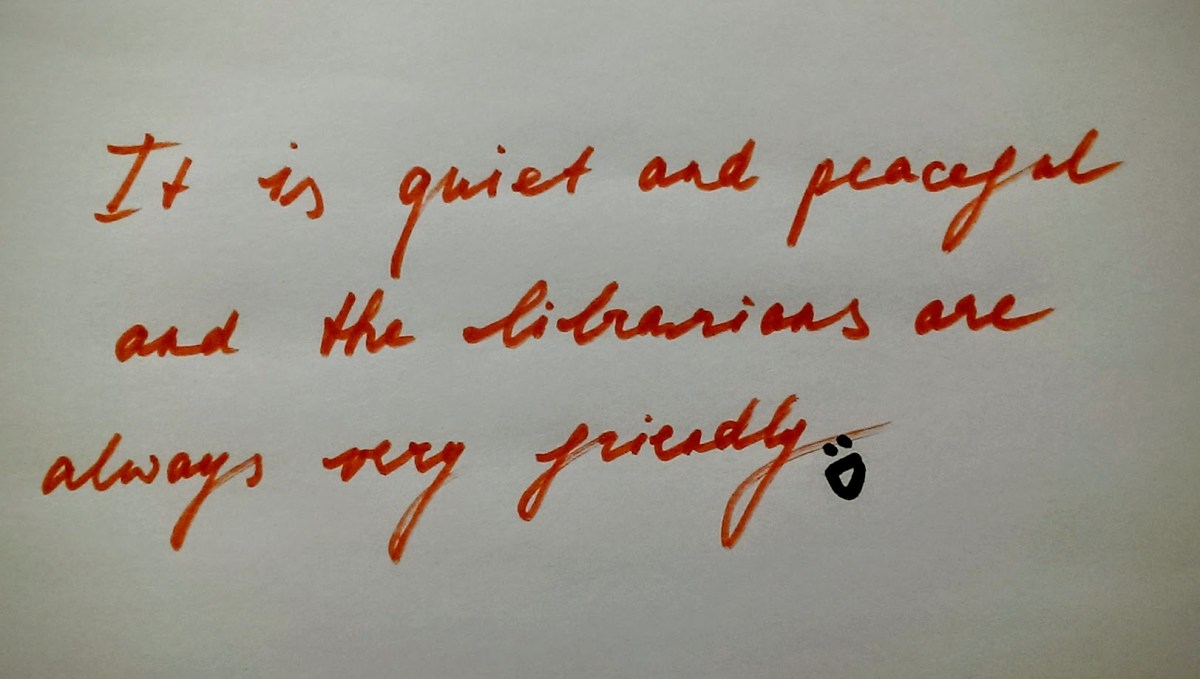 It is quiet and peaceful
and the librarians are
always very friendly